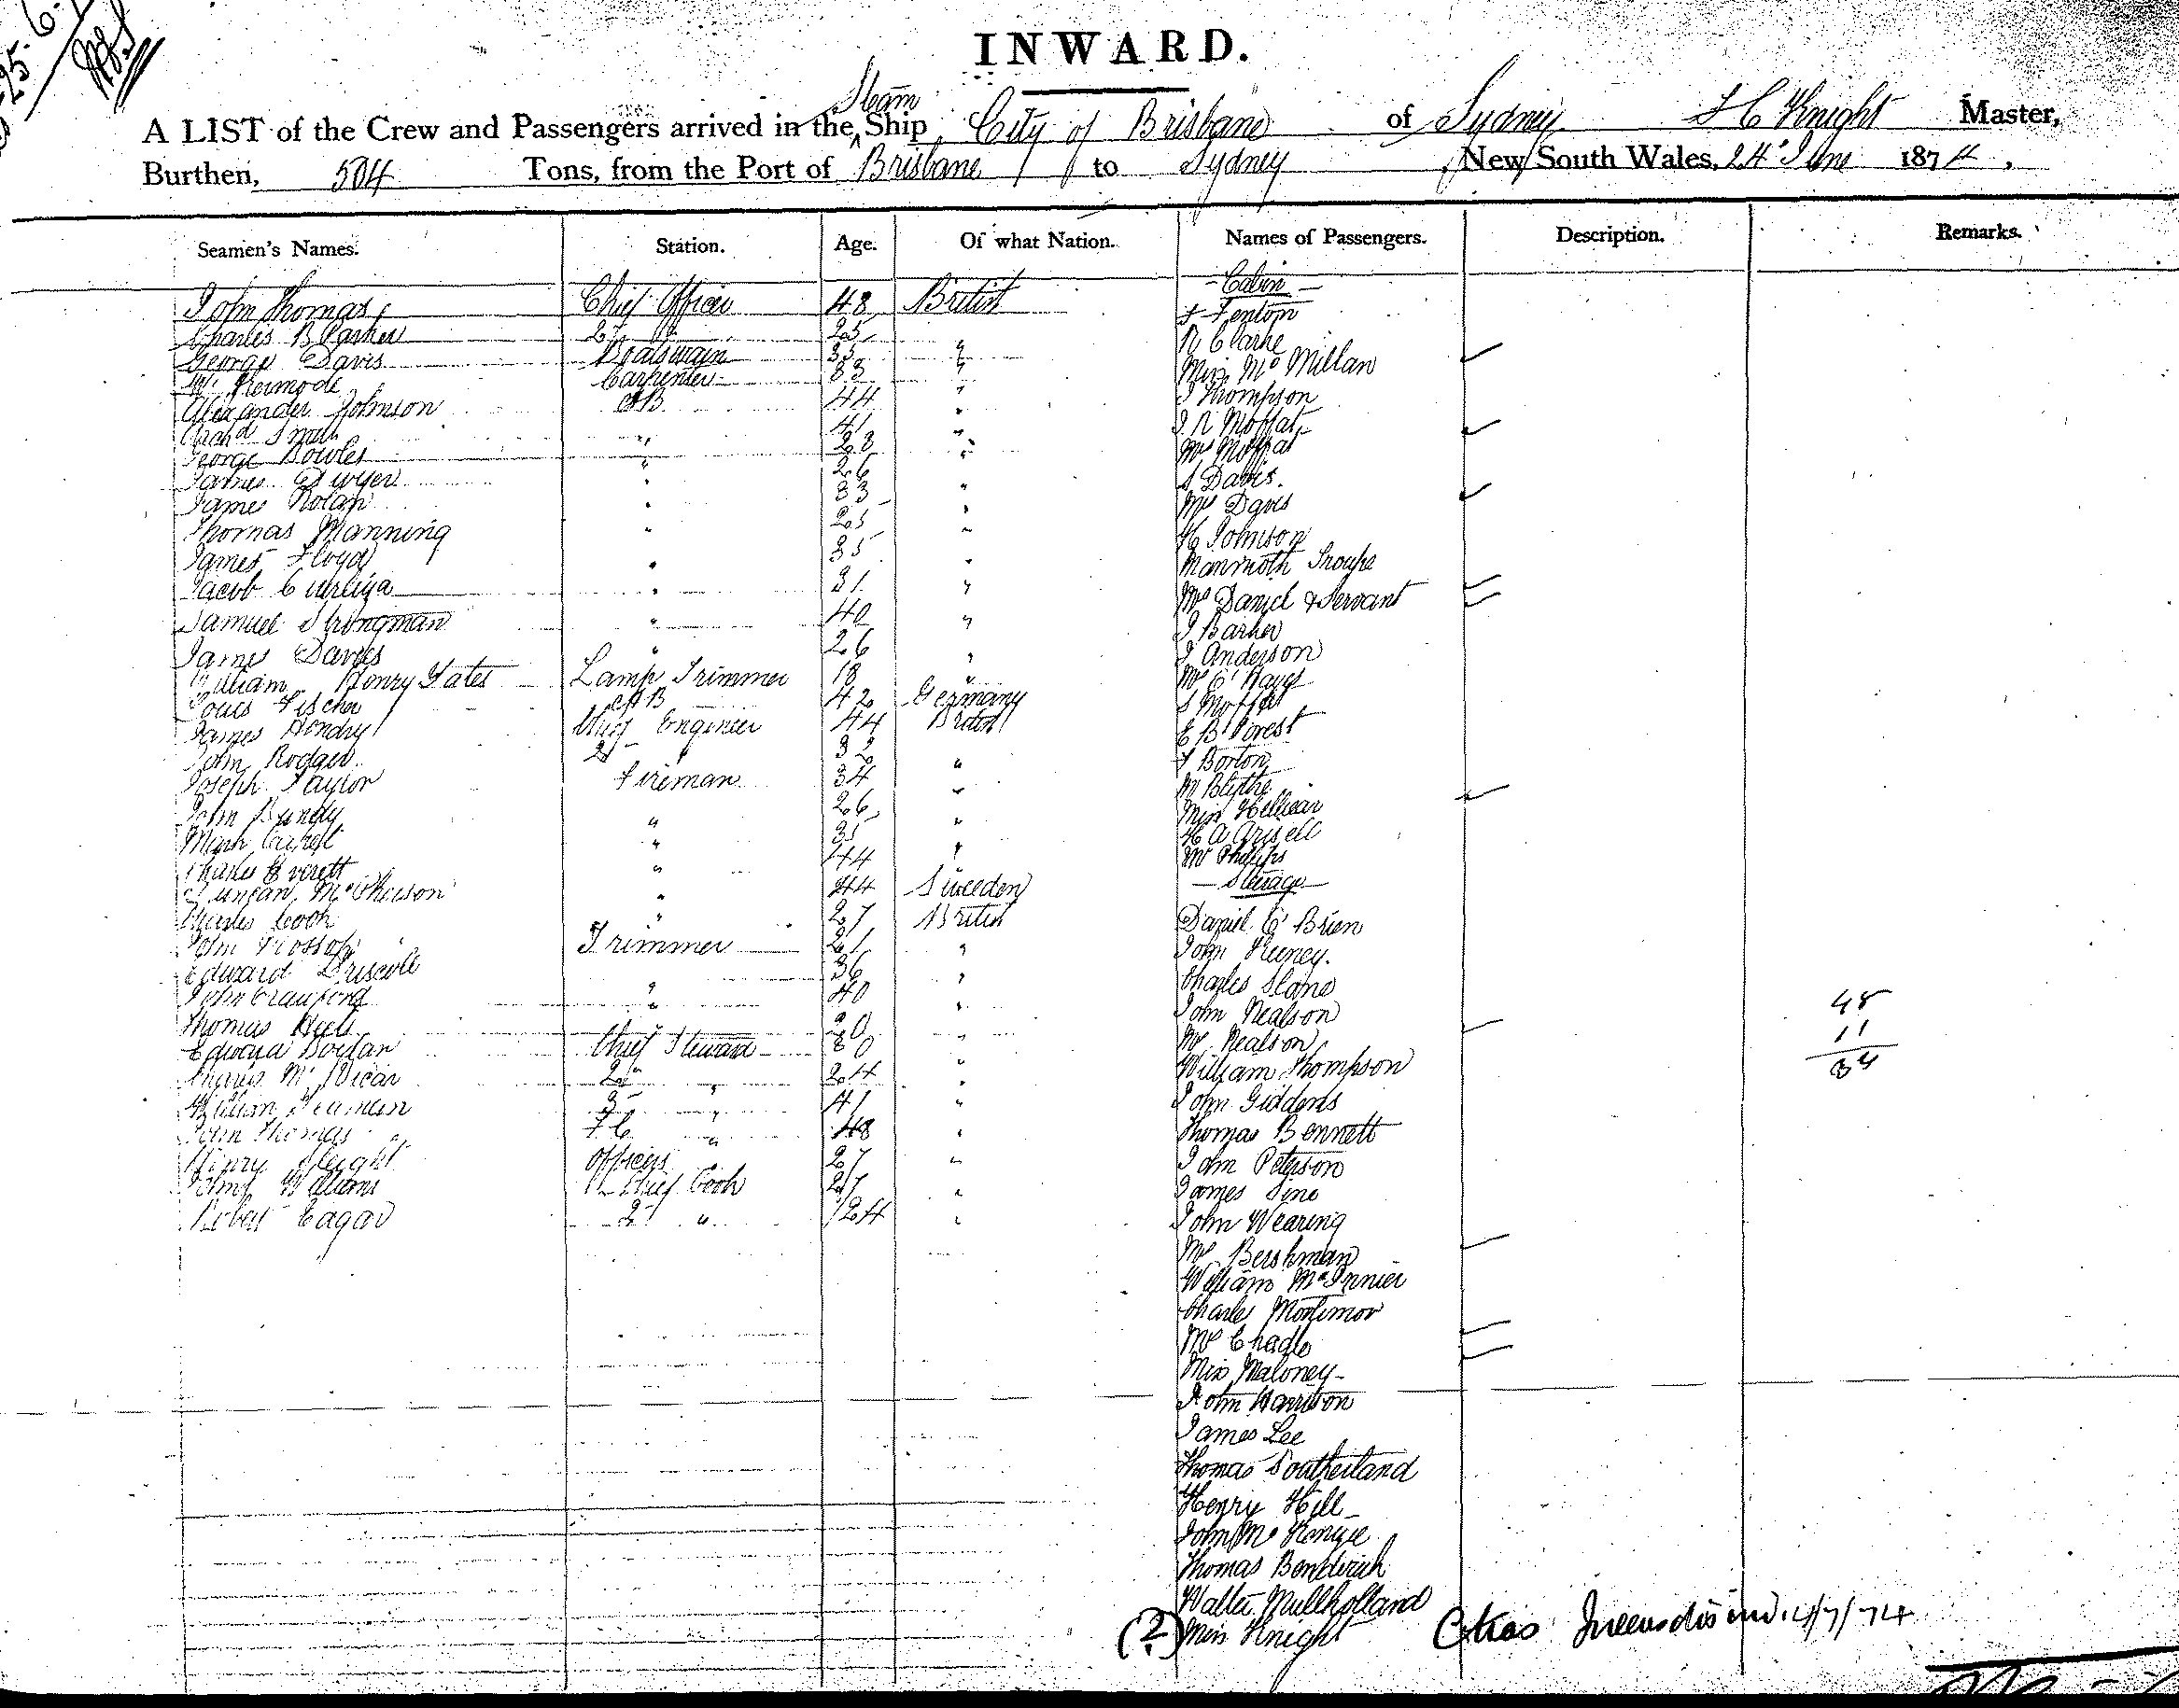 INWARD.
Steam
A LIST of the Crew and Passengers arrived in the Ship City of Brisbane of Sydney F C Knight Master,
Burthen, 504 Tons, from the Port of Brisbane to Sydney New South Wales, 24 June 1874,
Seamen's Names. Station. Age. Of what Nation. Names of Passengers. Description. Remarks.
John Thomas Chief Officer 48 British
Charles B Parker 25
George Davis Boatswain 35 "
Wm Kermode Carpenter 33 "
Alexander Johnson AB 44 "
Archd Smith " 41 "
George Bowles " 28 "
James Dwyer " 26
James Nolan " 33 "
Thomas Manning " 25 "
James Floyd " 35 "
Jacob " 31 "
Samuel Strongman " 40 "
James Davies " 26 "
William Henry Yates Lamp Trimmer 18 "
Louis Fischer AB 42 Germany
James Hendry Chief Engineer 44 British
John Rodger 2d " 32 "
Joseph Taylor Fireman 34 "
John Bundy " 26 "
" 35 "
Charles Everett " 44
Duncan McPherson " 44 Sweeden
Charles Cook " 27 British
John Trimmer 21 "
Edward Driscoll 36 "
John Crawford " 40 "
Thomas " 20 "
Edward Chief Steward 30 "
Angus McVicar 2d " 24 "
William 3 " 41 "
John Thomas F C " 48 "
Henry Officers 27 "
James Williams Chief Cook 27 "
Robert Eagar 2 " 24 "
Cabin
F Fenton
R Clarke
Miss McMillan
J Thompson
J R Moffat
Mrs Moffat
S Davis.
Mrs Davis
H Johnson
Mammoth Troupe
Mrs Daniel & Servant
J Barker
J Anderson
Mr O'Hayes
S Moffat
E B Forest
F Borton
W Blythe
Miss Hellicar
H A
Mr Phillips
Steerage
Daniel O'Brien
John Feeney.
Charles Slane
John Nealson
Mrs Nealson
William Thompson
John Giddens
Thomas Bennett
John Peterson
James Sine
John Wearing
Mrs Bershman
William McInnier
Charles Mortimor
Mrs Chadle
Miss Maloney
John Harrison
James Lee
Thomas Southerland
Henry Hill
John McKenzie
Thomas Benderick
Walter Mullholland
(2) Miss Knight
48
11
34
4/7/74